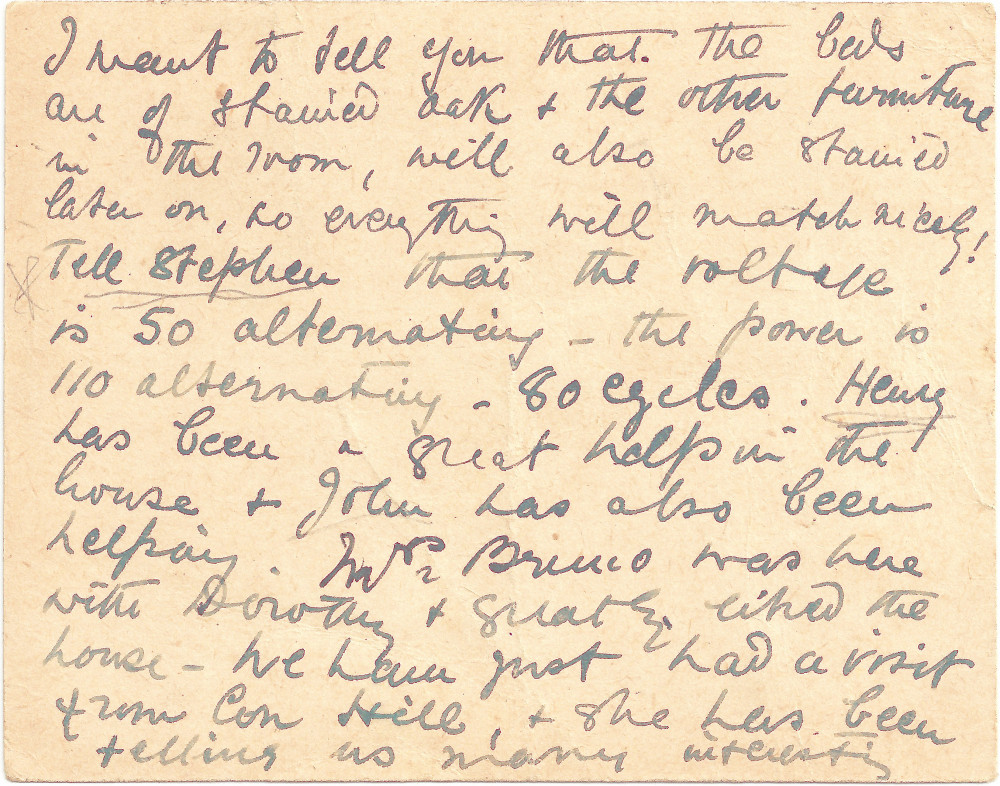 I want to tell you that. the beds
are of stained oak & the other furniture
in the room, will also be stained
later on, so everything will match nicely!
Tell Stephen that the voltage
is 50 alternating – the power is
110 alternating – 80 cycles. Henry
has been a great help in the
house & John has also been
helping. Mrs Bruno was here
with Dorothy & greatly liked the
house – We have just had a visit
from Con Hill, & she has been
telling us many interestig